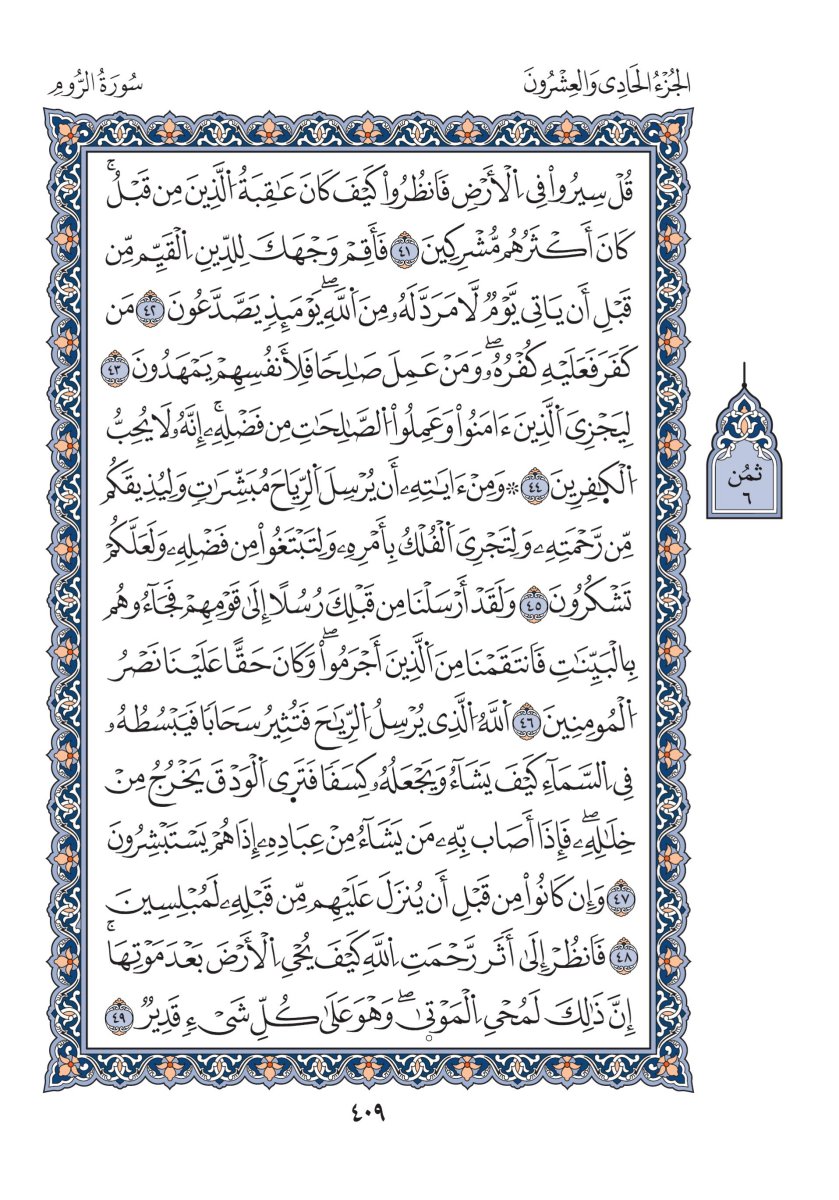 الجُزْءُ الحَادِى وَالعِشْرُونَ
سُورَةُ الرُّومِ
قُلْ سِيرُواْ فِى اِ۬لْأَرْضِ فَانظُرُواْ كَيْفَ كَانَ عَٰقِبَةُ اُ۬لَّذِينَ مِن قَبْلُۚ
كَانَ أَكْثَرُهُم مُّشْرِكِينَ ٤١ فَأَقِمْ وَجْهَكَ لِلدِّينِ اِ۬لْقَيِّم مِّن
قَبْلِ أَن يَاتِى يَّوْمٌ لَّا مَرَدَّ لَهُۥ مِنَ اَ۬للَّهِۖ يَوْمَئِذٍ يَصَّدَّعُونَ ٤٢ مَن
كَفَرَ فَعَلَيْهِ كُفْرُهُۥۖ وَمَنْ عَمِلَ صَٰلِحًا فَلِأَنفُسِهِمْ يَمْهَدُونَ ٤٣
لِيَجْزِىَ اَ۬لَّذِينَ ءَامَنُواْ وَعَمِلُواْ اُ۬لصَّٰلِحَٰتِ مِن فَضْلِهِۦۚ إِنَّهُۥ لَا يُحِبُّ
اُ۬لْكٰ۪فِرِينَ ٤٤ ۞ وَمِنْ ءَايَٰتِهِۦ أَن يُرْسِلَ اَ۬لرِّيَاحَ مُبَشِّرَٰتٍ وَلِيُذِيقَكُم
مِّن رَّحْمَتِهِۦ وَلِتَجْرِىَ اَ۬لْفُلْكُ بِأَمْرِهِۦ وَلِتَبْتَغُواْ مِن فَضْلِهِۦ وَلَعَلَّكُمْ
تَشْكُرُونَ ٤٥ وَلَقَدْ أَرْسَلْنَا مِن قَبْلِكَ رُسُلًا إِلَىٰ قَوْمِهِمْ فَجَآءُوهُم
بِالْبَيِّنَٰتِ فَانتَقَمْنَا مِنَ اَ۬لَّذِينَ أَجْرَمُواْۖ وَكَانَ حَقًّا عَلَيْنَا نَصْرُ
اُ۬لْمُومِنِينَ ٤٦ اَ۬للَّهُ اُ۬لَّذِى يُرْسِلُ اُ۬لرِّيَٰحَ فَتُثِيرُ سَحَابًا فَيَبْسُطُهُۥ
فِى اِ۬لسَّمَآءِ كَيْفَ يَشَآءُ وَيَجْعَلُهُۥ كِسَفًا فَتَرَى اَ۬لْوَدْقَ يَخْرُجُ مِنْ
خِلَٰلِهِۦۖ فَإِذَا أَصَاب بِّهِۦ مَن يَشَآءُ مِنْ عِبَادِهِۦ إِذَا هُمْ يَسْتَبْشِرُونَ
٤٧ وَإِن كَانُواْ مِن قَبْلِ أَن يُنزَلَ عَلَيْهِم مِّن قَبْلِهِۦ لَمُبْلِسِينَ
٤٨ فَانظُرْ إِلَىٰ أَثَر رَّحْمَتِ اِ۬للَّهِ كَيْفَ يُحْىِ اِ۬لْأَرْضَ بَعْدَ مَوْتِهَاۚ
إِنَّ ذَٰلِكَ لَمُحْىِ اِ۬لْمَوْتٜىٰۖ وَهْوَ عَلَىٰ كُلِّ شَىْءٍ قَدِيرٌ ٤٩
ثمُن
٦
٤٠٩